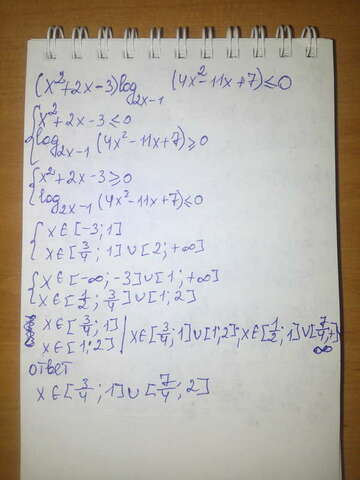 (x²+2x-3)log₂ₓ₋₁ (4x²-11x+7)≤0
{x²+2x-3≤0
log₂ₓ₋₁ (4x²-11x+7)≥0
{x²+2x-3≥0
log₂ₓ₋₁ (4x²-11x+7)≤0
{x∈[-3;1]
x∈[3/4;1]∪[2;+∞]
{x∈[-∞;-3]∪[1;+∞]
x∈[1/2;3/4]∪[1;2]
x∈[3/4;1] | x∈[3/4;1]∪[1;2]; x∈[1/2;1]∪[7/4;+∞
x∈[1;2]
ответ
x∈[3/4;1]∪[7/4;2]